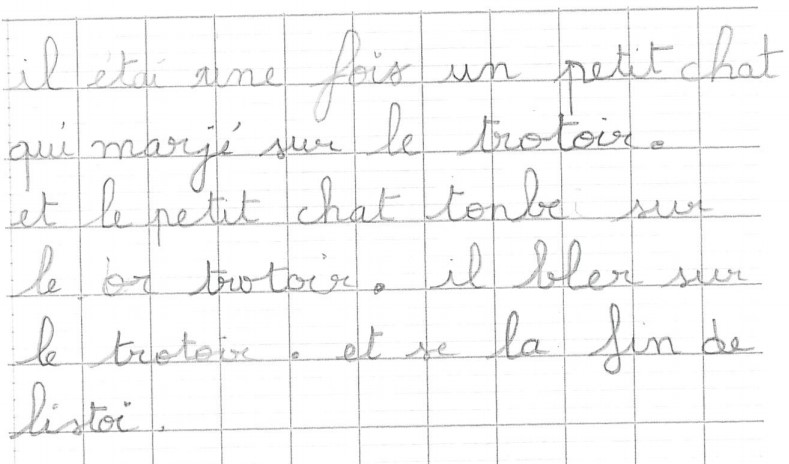 il étai une fois un petit chat
qui marjé sur le trotoir.
et le petit chat tonbe sur
le or trotoir. il bler sur
le trotoir. et se la fin de
listoi.